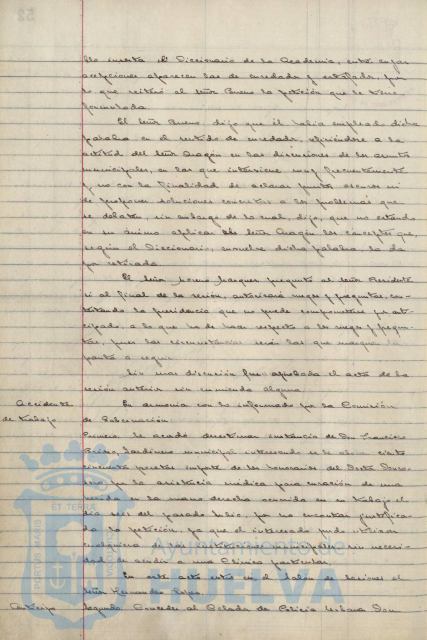 52
lo inserta el Diccionario de la Academia, entre cuyas
acepciones aparecen las de enredador y estafador, por
lo que reiteró al señor Bueno la petición que le tiene
formulada.
El señor Bueno dijo que él había empleado dicha
palabra en el sentido de enredador, refiriéndose a la
actitud del señor en las discusiones de los asuntos
municipales, en las que interviene muy frecuentemente
y no con la finalidad de aclarar puntos oscuros ni
de proponer soluciones concretas a los problemas que
se debaten, sin embargo de lo cual, dijo, que no estando
en su ánimo aplicar al señor los conceptos que,
según el Diccionario, envuelve dicha palabra, la da
por retirada.
El señor Moreno Marquez preguntó al señor Presidente
si al final de la sesión, autorizará ruegos y preguntas, con-
testando la presidencia que no puede comprometerse anti-
cipado, a lo que ha de hacer respecto a los ruegos y pregun-
tas, pues las circunstancias serán las que marquen la
pauta a seguir.
Sin mas discusión fue aprobada el acta de la
sesión anterior sin enmienda alguna.
Accidente
de trabajo
En armonía con lo informado por la Comisión
de Gobernación:
Primero. Se acordó desestimar instancia de Don Francisco
Jardinero municipal interesando se le abone ciento
cincuenta pesetas importe de los honorarios del Doctor
por la asistencia médica para curación de una
herida en la mano derecha ocurrida en su trabajo el
día seis del pasado Julio, por no encontrar justifica-
da la petición, ya que el interesado pudo utilizar
cualquiera de los sin necesi-
dad de acudir a una Clínica particular.
En este acto entró en el Salón de Sesiones el
señor Fernandez
Anticipo
Segundo. Conceder al Celador de Policia Urbana Don
PORTUS MARIS ET TERRAE
Ayuntamiento de
HUELVA